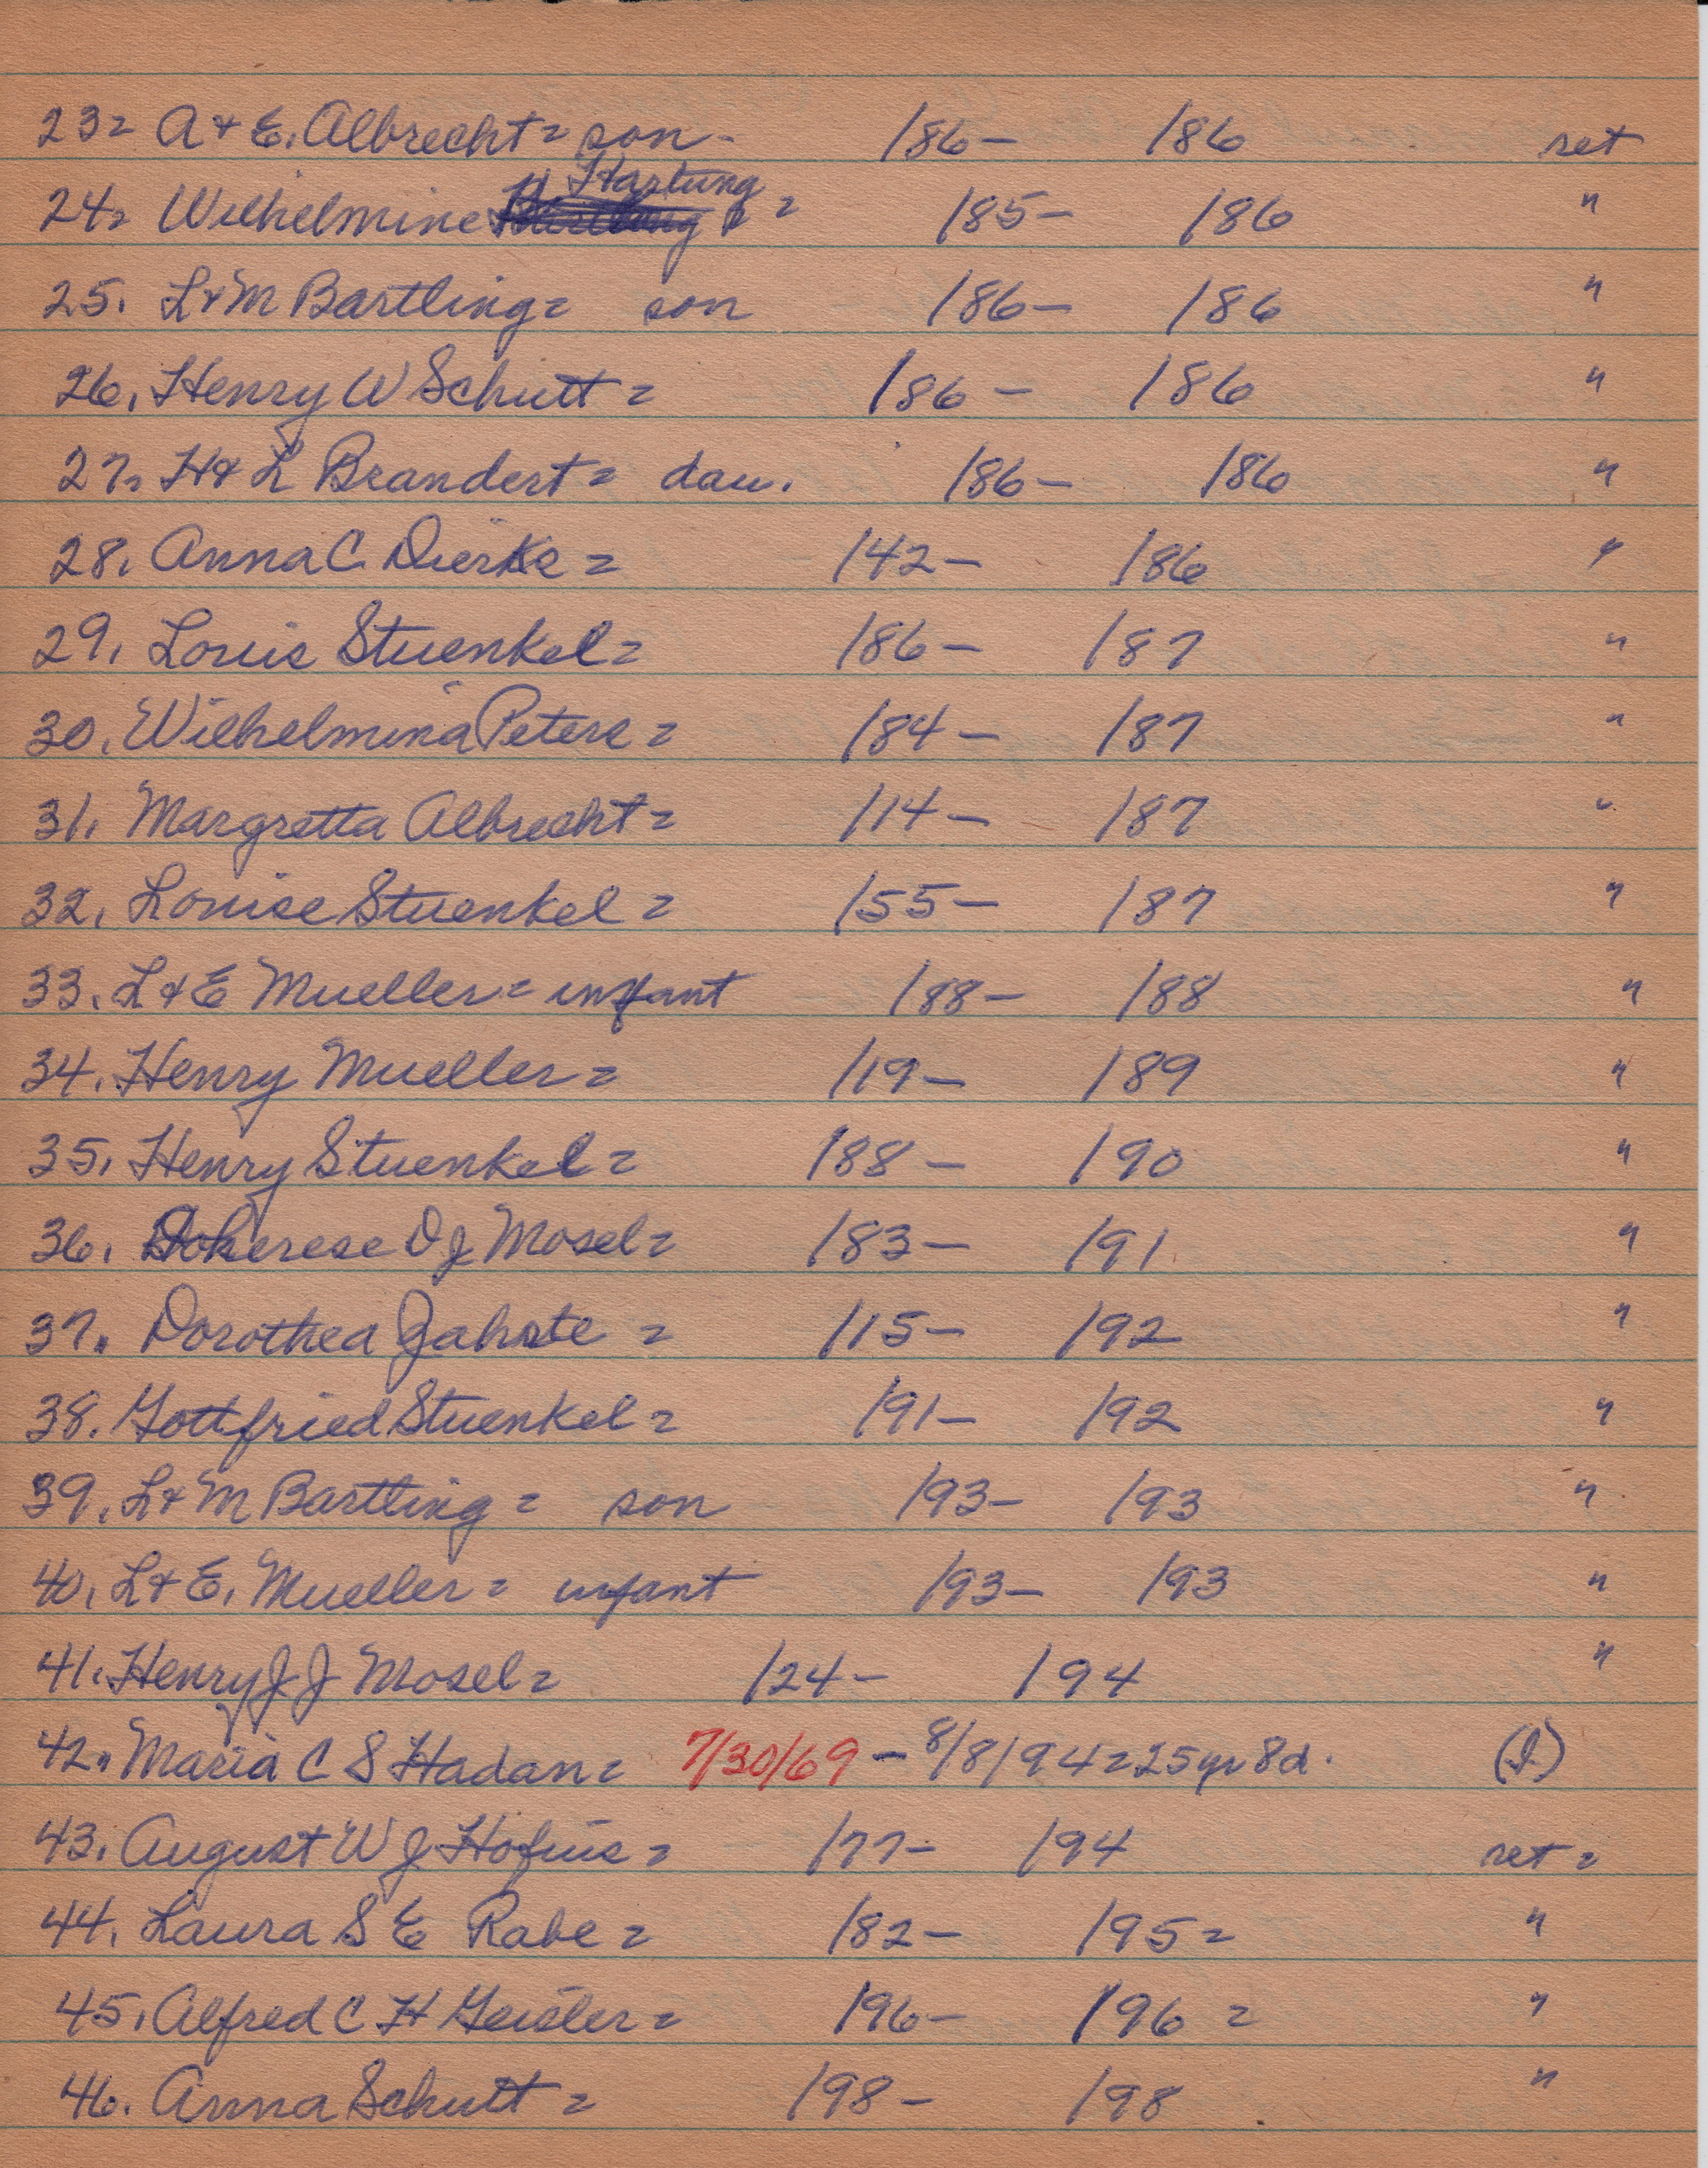 23= A & E. Albrecht = son - /86 - /86 set
24= Wilhelmine Hartung = /85 - /86 "
25. L & M Bartling = son /86 - /86 "
26. Henry W Schutt = /86 - /86 "
27. H & L Brandert = dau. /86 - /86 "
28. Anna C. Dierke = /42 - /86 "
29. Louis Stuenkel = /86 - /87 "
30. Wilhelmina Peters = /84 - /87 "
31. Margretta Albrecht = /14 - /87 "
32. Louise Stuenkel = /55 - /87 "
33. L & E Mueller = infant /88 - /88 "
34. Henry Mueller = /19 - /89 "
35. Henry Stuenkel = /88 - /90 "
36. O J Mosel = /83 - /91 "
37. Dorothea = /15 - /92 "
38. Gottfried Stuenkel = /91 - /92 "
39. L & M Bartling = son /93 - /93 "
40. L & E. Mueller = infant /93 - /93 "
41. Henry J J Mosel = /24 - /94 "
42. Maria C S Hadan = 7/30/69 - 8/8/94 = 25 yr 8d. (I)
43. August W J Hofius = /77 - /94 set =
44. Laura S E Rabe = /82 - /95 = "
45. Alfred C H Geisler = /96 - /96 = "
46. Anna Schutt = /98 - /98 "